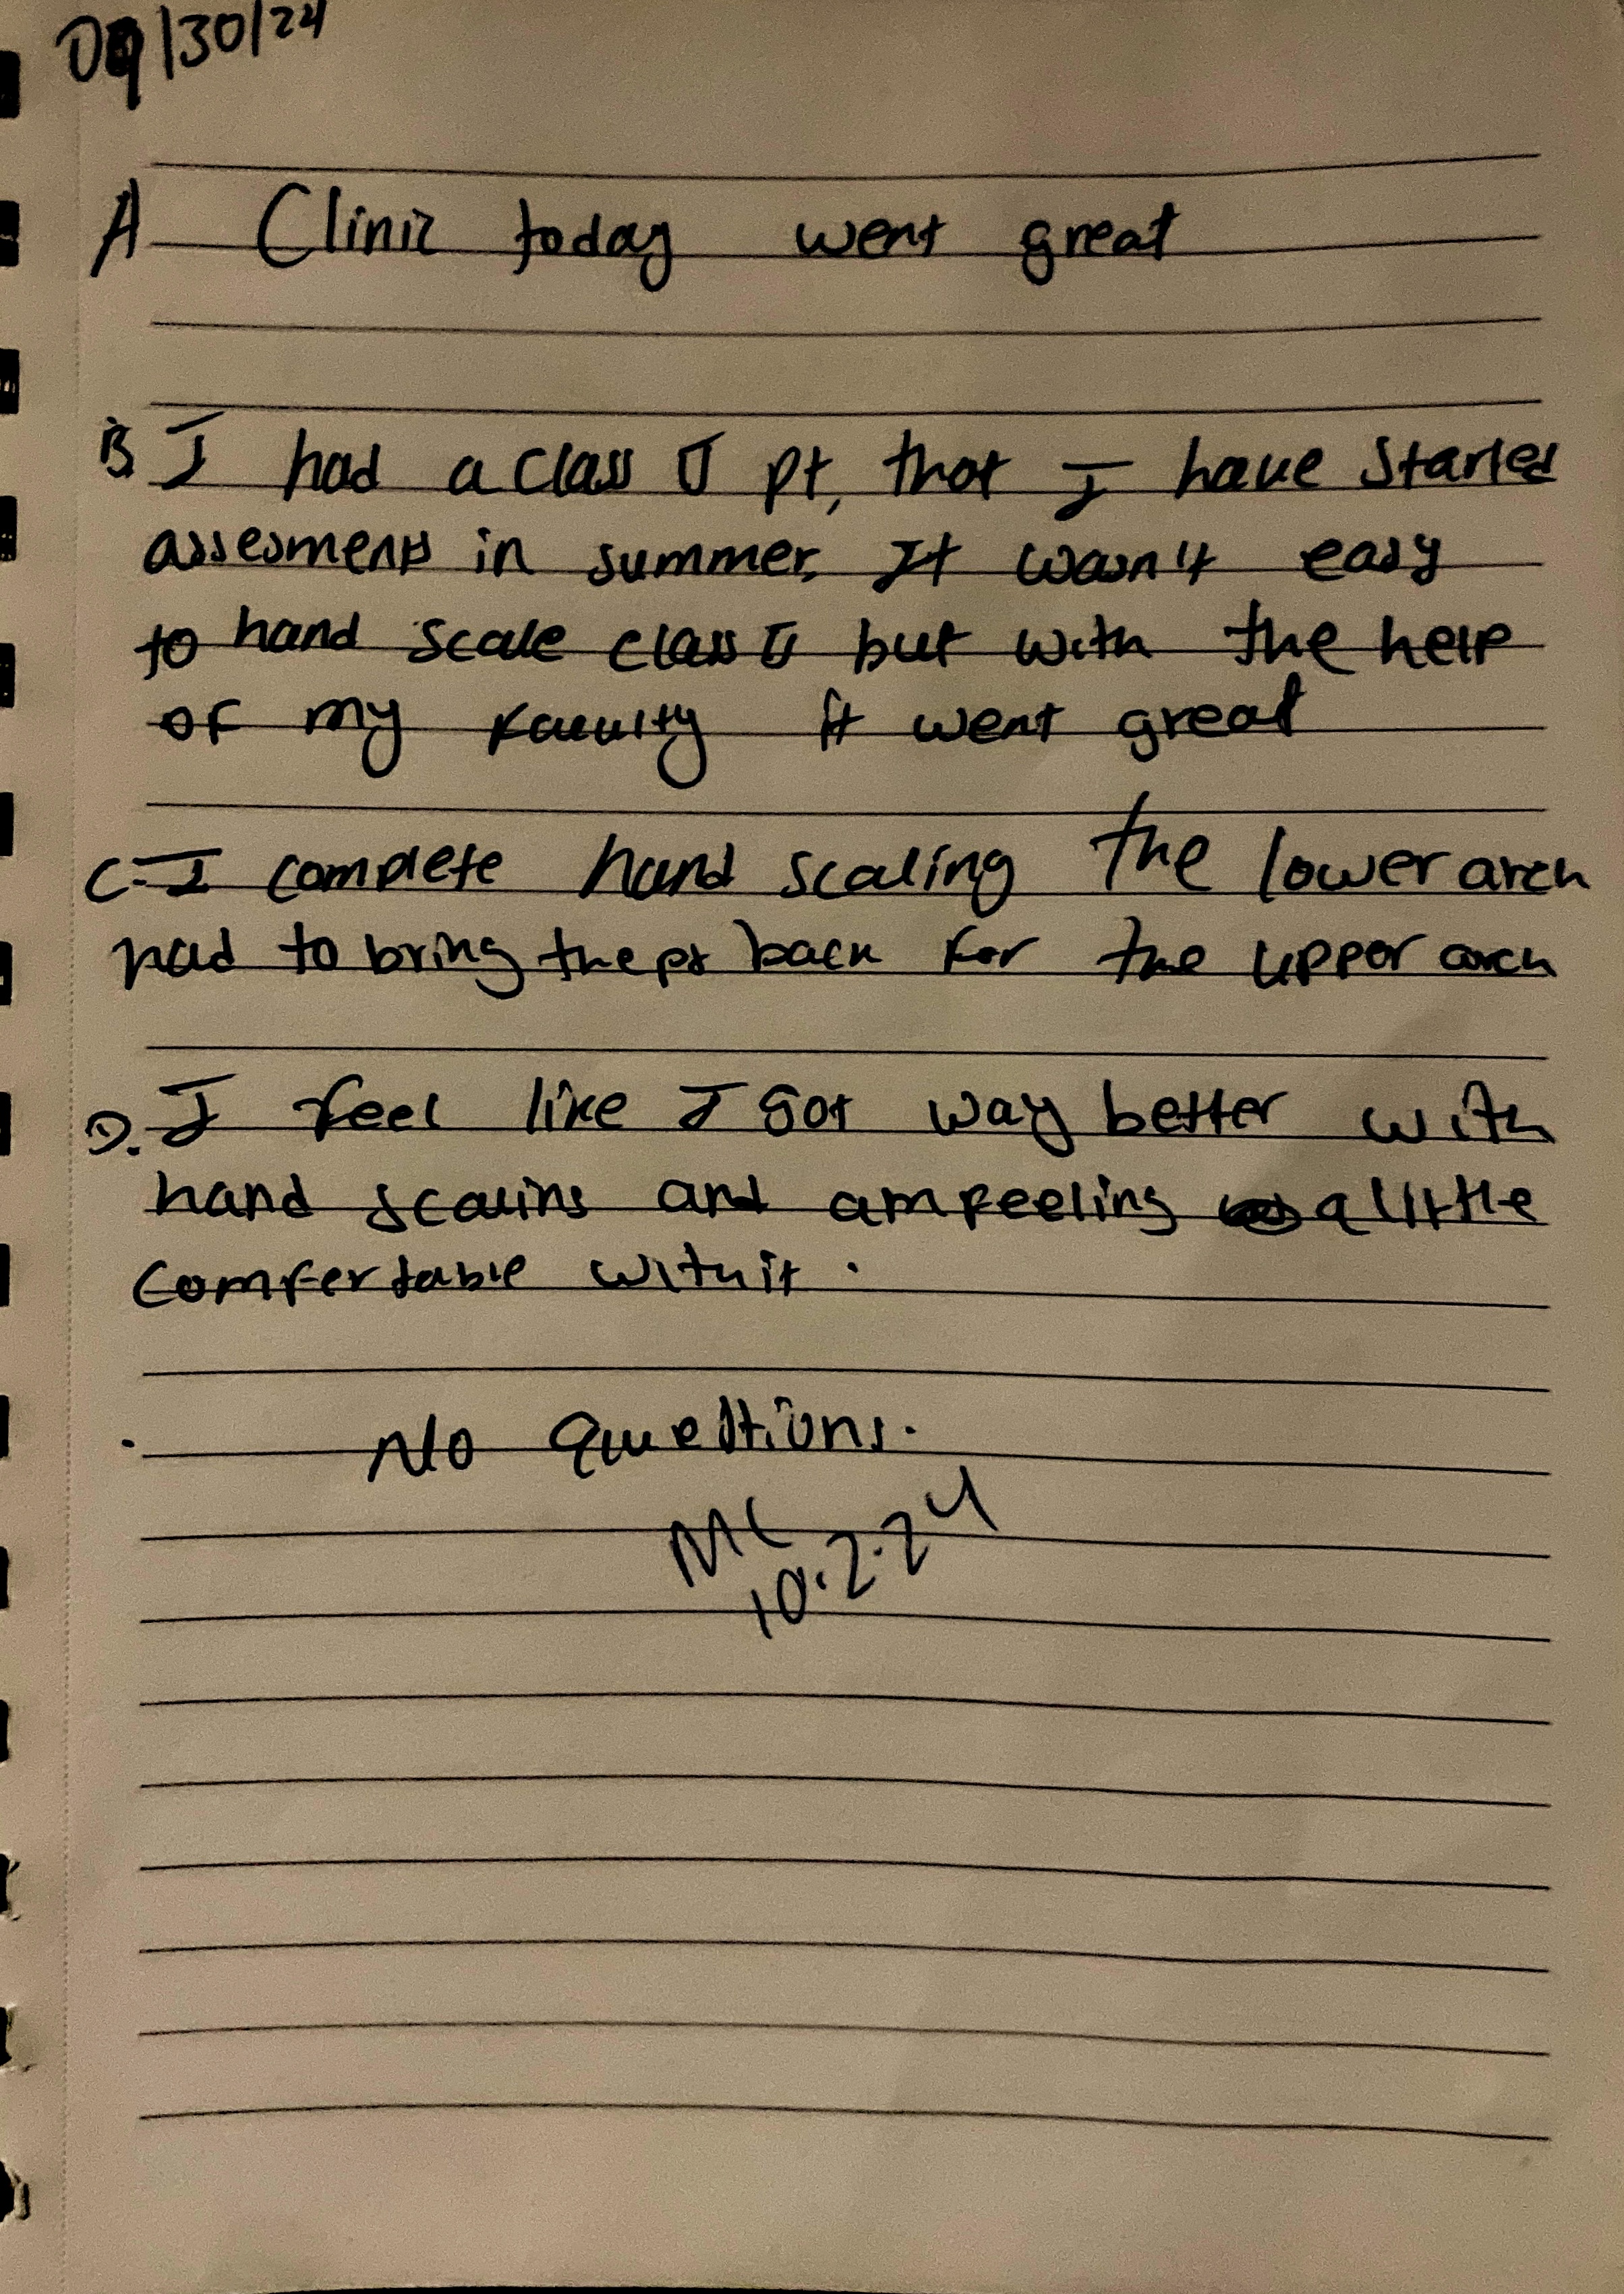 09/30/24
A Clinic today went great
B I had a class II pt, that I have started
assesments in summer. It wasn't easy
to hand scale class II but with the help
of my faculty it went great
C. I complete hand scaling the lower arch
had to bring the pt back for the upper arch
D. I feel like I got way better with
hand scaling and am feeling a little
comfertable with it.
No questions.
MC
10.2.24